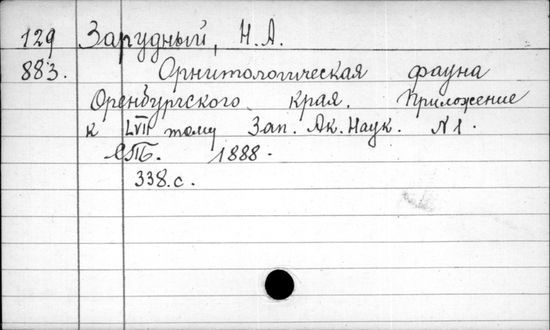 129 Зарудный, Н.А.
883. Орнитологическая фауна
Оренбургского края. Приложение
к LVII тому Зап. Ак. Наук. N 1.
СПБ. 1888.
338.с.